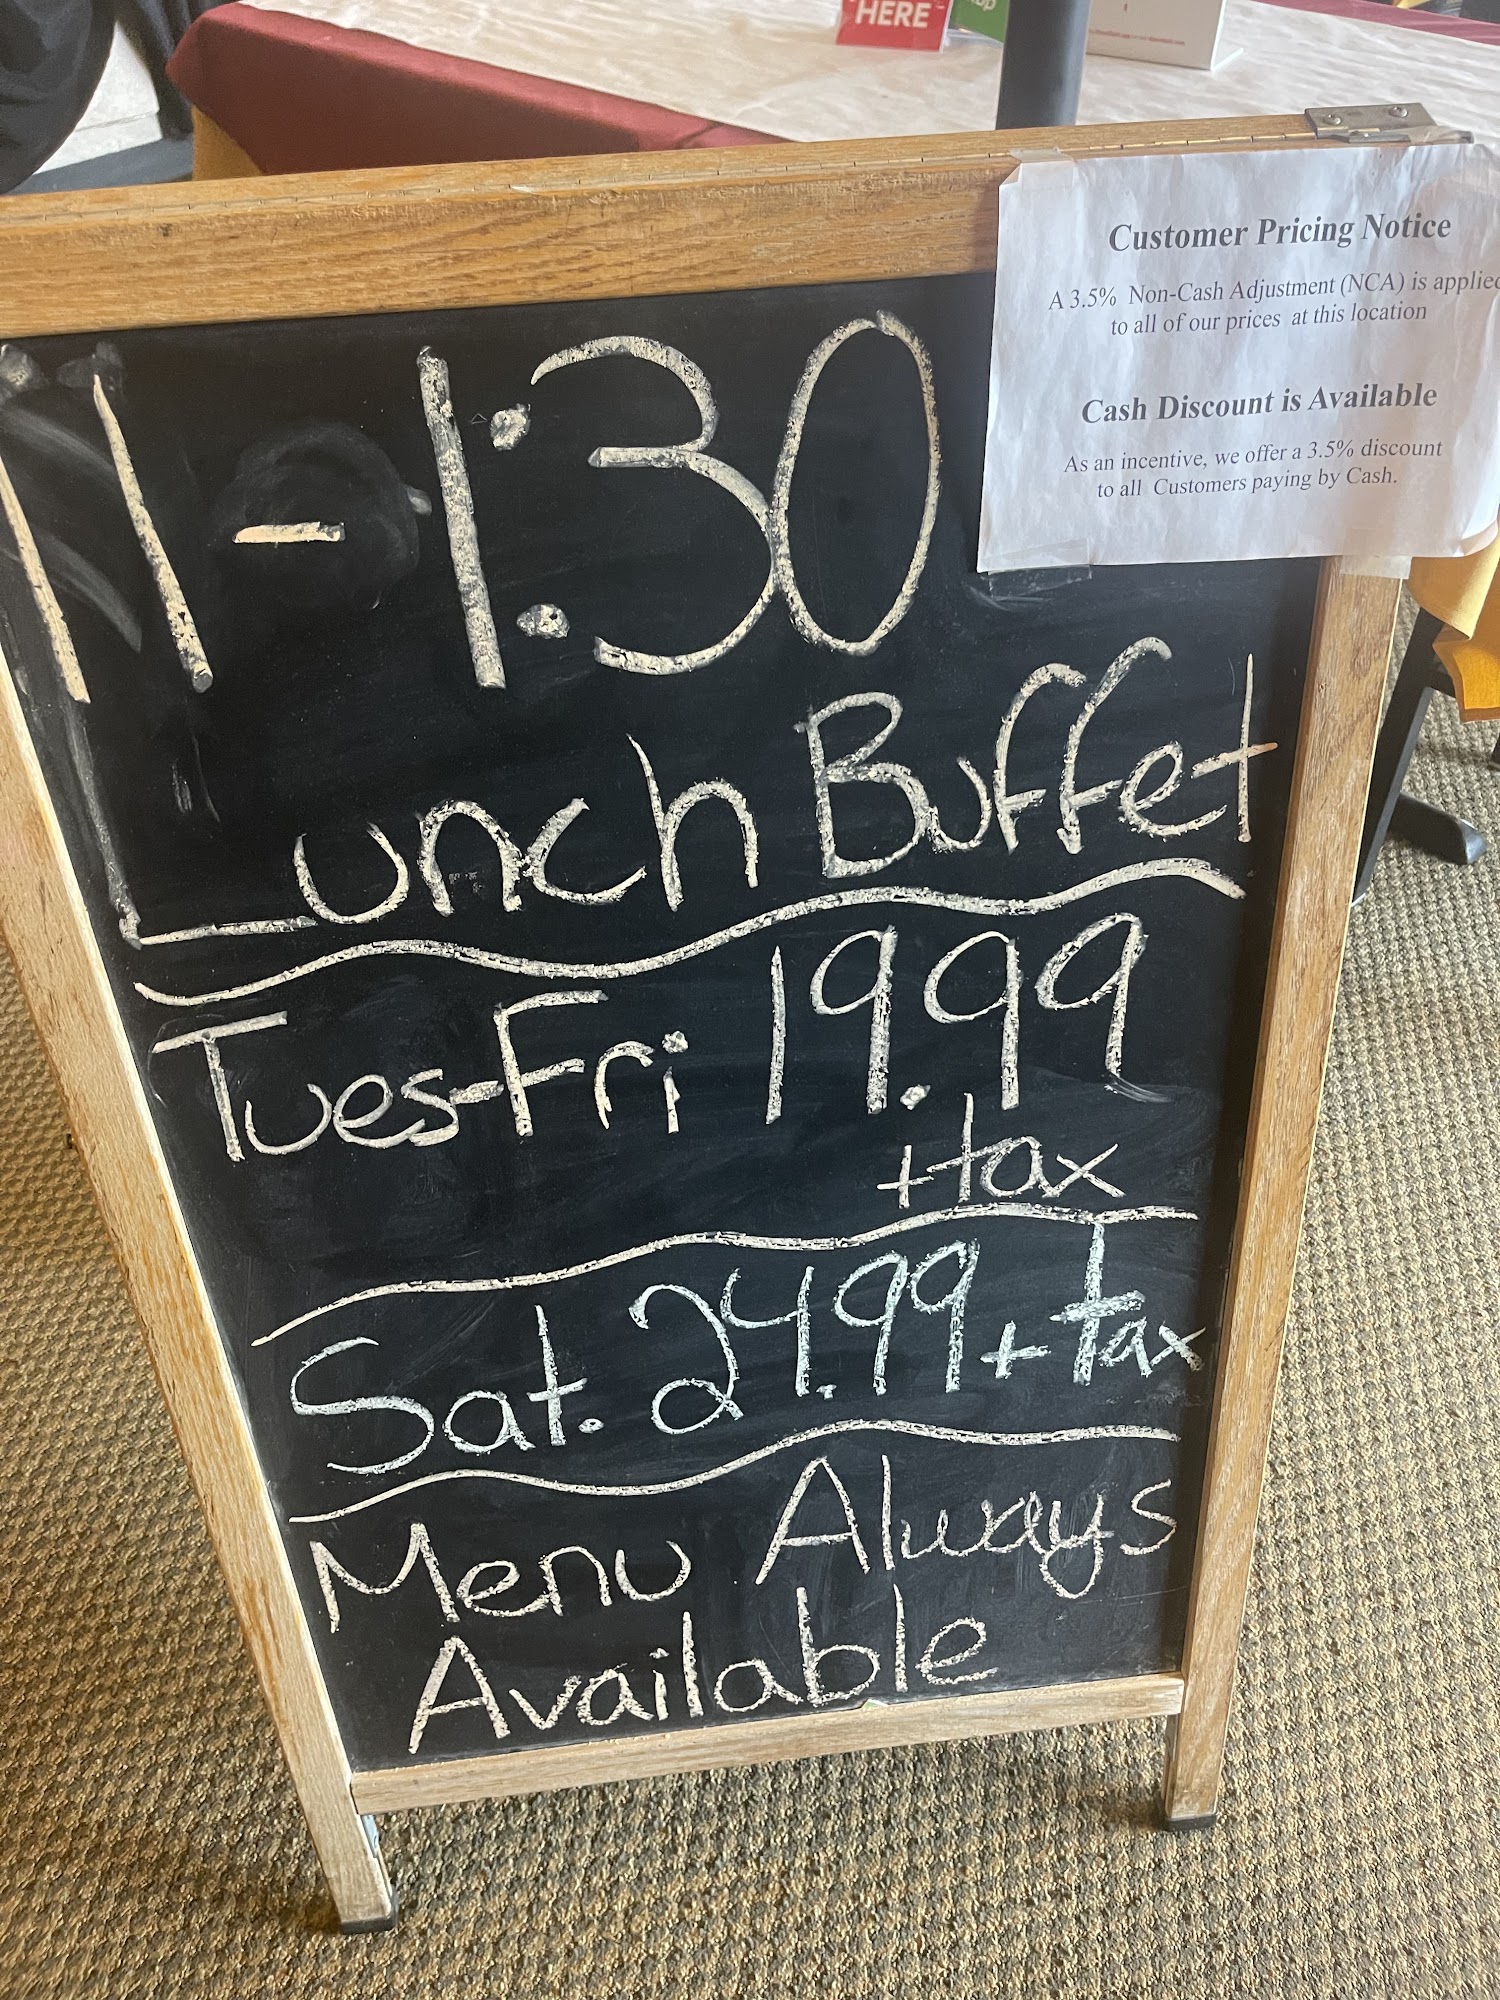 HERE
Customer Pricing Notice
A 3.5% Non-Cash Adjustment (NCA) is applied
to all of our prices at this location
Cash Discount is Available
As an incentive, we offer a 3.5% discount
to all Customers paying by Cash.
11-1:30
Lunch Buffet
Tues-Fri 19.99
+tax
Sat. 24.99+tax
Menu Always
Available